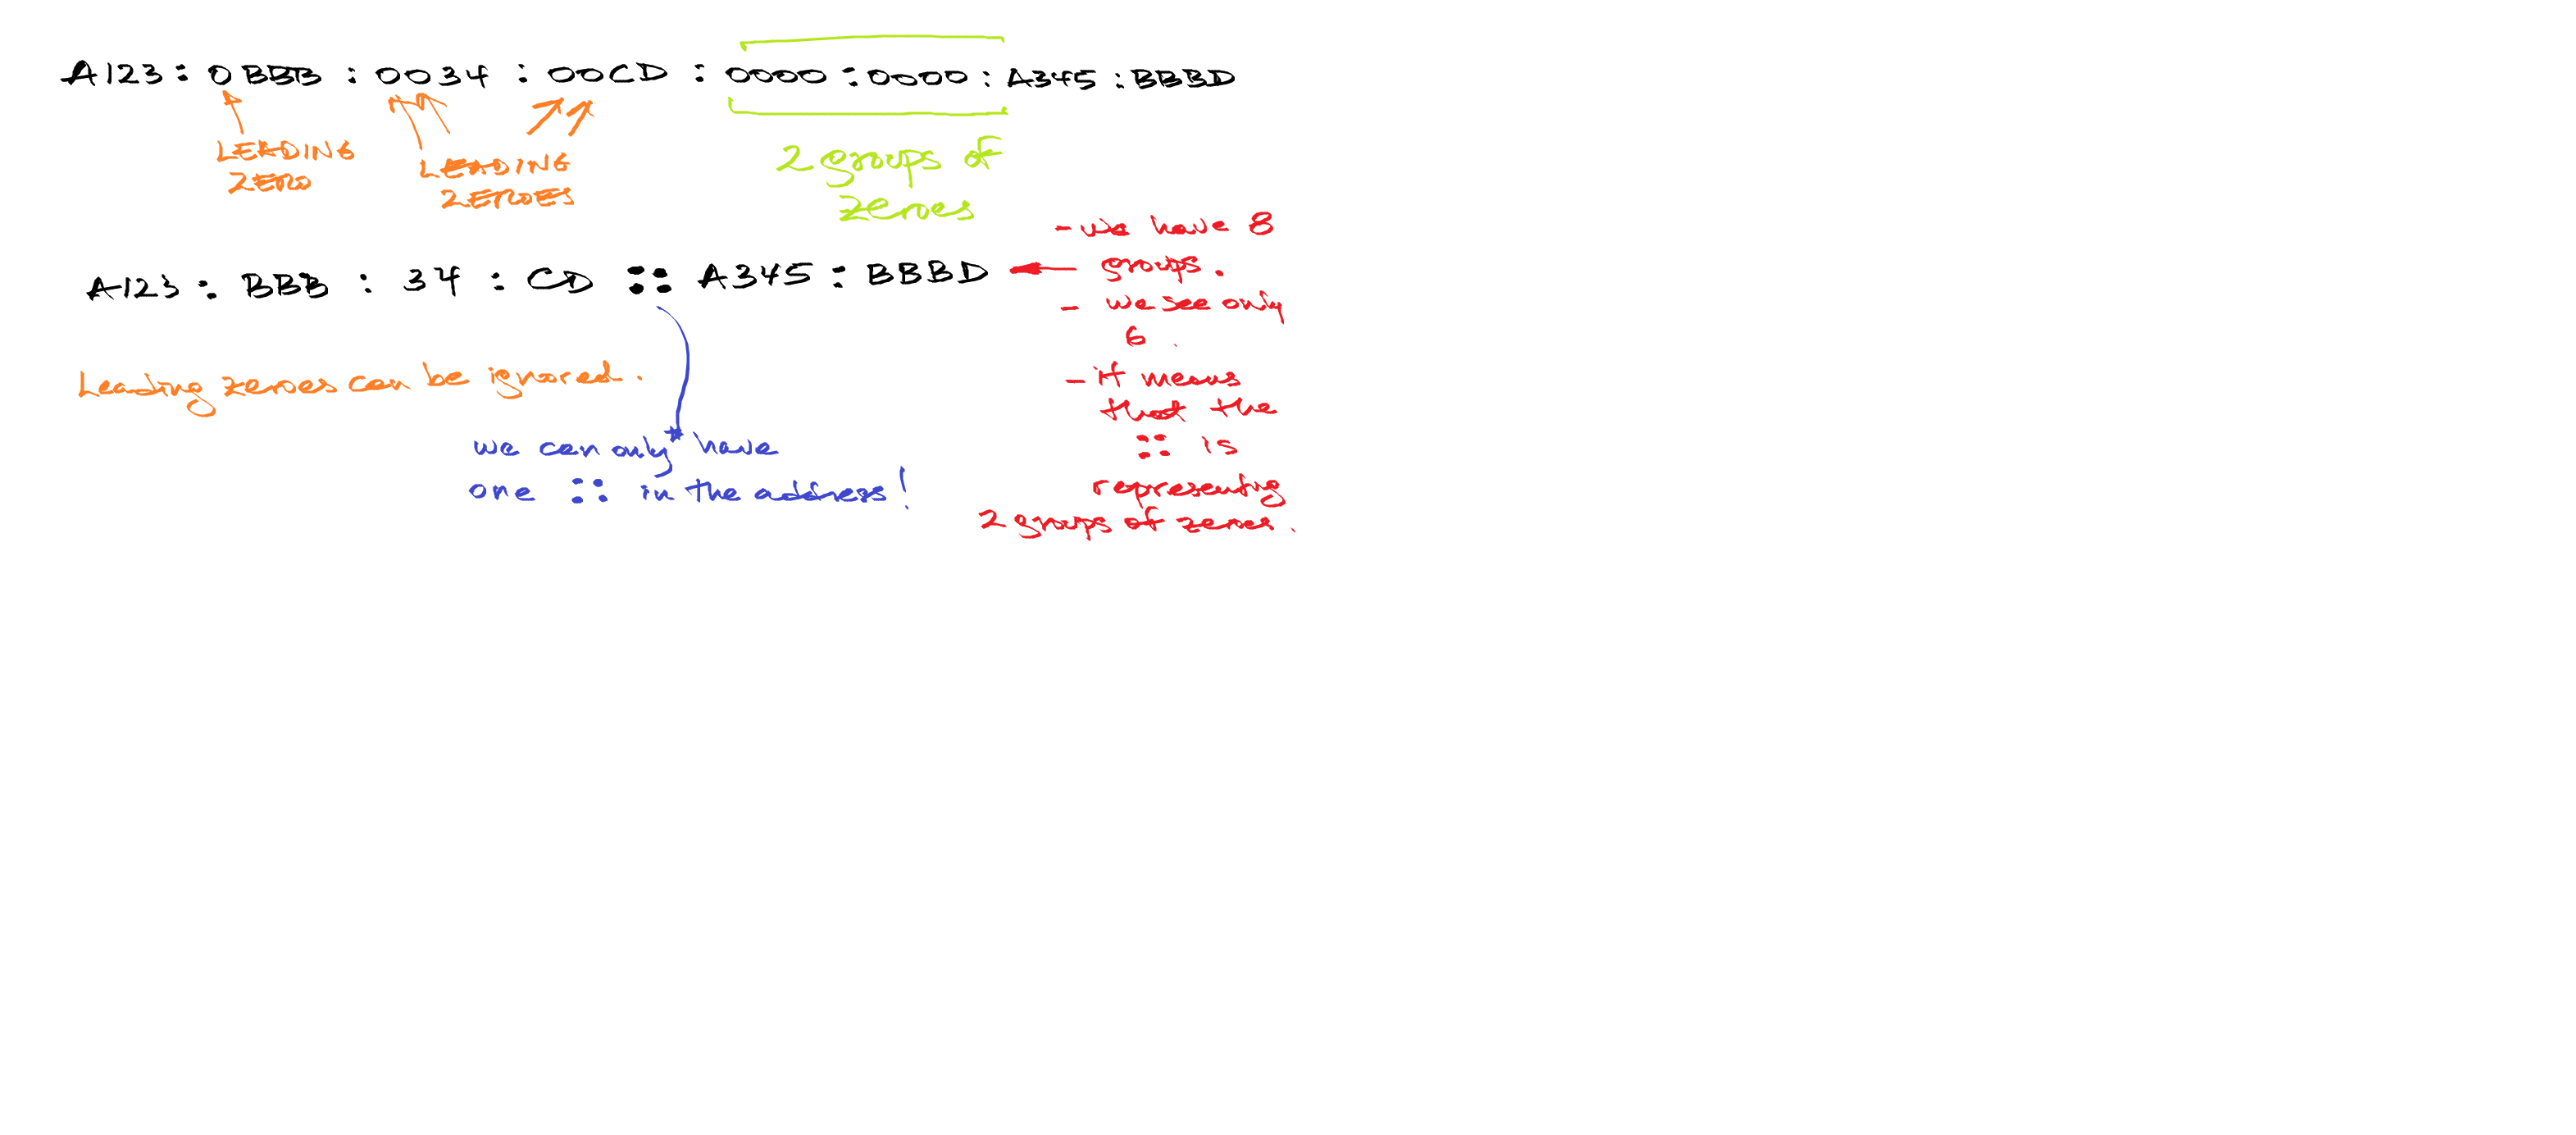 A123 : 0BBB : 0034 : 00CD : 0000 : 0000 : A345 : BBBD
LEADING
ZERO
LEADING
ZEROES
2 groups of
zeroes
A123 : BBB : 34 : CD :: A345 : BBBD
- we have 8
groups.
- we see only
6.
- it means
that the
:: is
representing
2 groups of zeroes.
Leading zeroes can be ignored.
we can only have
one :: in the address!